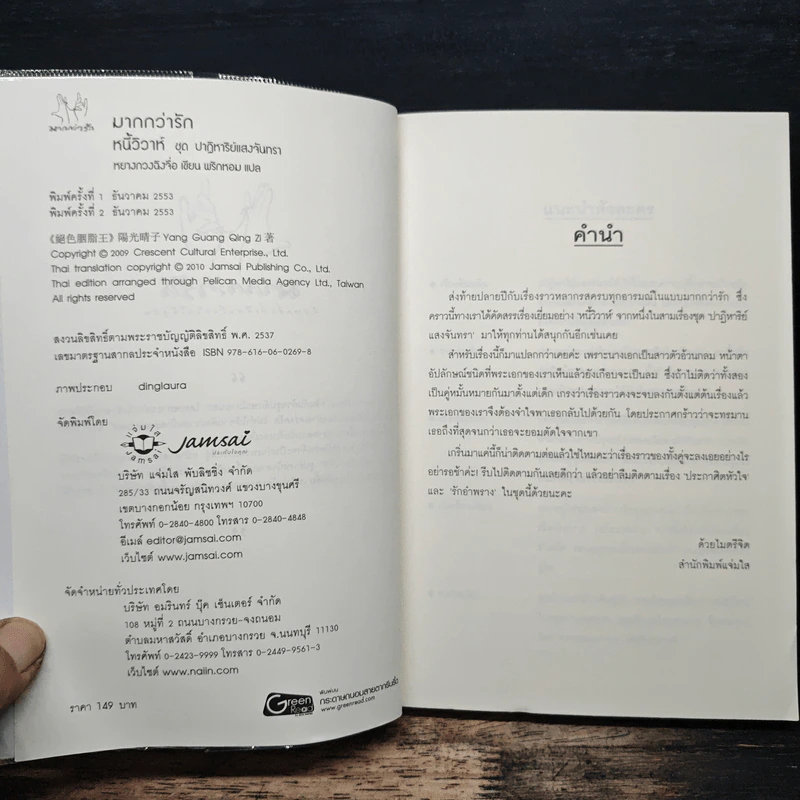 มากกว่ารัก
มากกว่ารัก
หนี้วิวาห์ ชุด ปาฏิหาริย์แสงจันทรา
หยางกวงฉิงจื่อ เขียน พริกหอม แปล
พิมพ์ครั้งที่ 1 ธันวาคม 2553
พิมพ์ครั้งที่ 2 ธันวาคม 2553
《絕色胭脂王》陽光晴子 Yang Guang Qing Zi 著
Copyright © 2009 Crescent Cultural Enterprise., Ltd.
Thai translation copyright © 2010 Jamsai Publishing Co., Ltd.
Thai edition arranged through Pelican Media Agency Ltd., Taiwan
All rights reserved
สงวนลิขสิทธิ์ตามพระราชบัญญัติลิขสิทธิ์ พ.ศ. 2537
เลขมาตรฐานสากลประจำหนังสือ ISBN 978-616-06-0269-8
ภาพประกอบ dinglaura
จัดพิมพ์โดย
แจ่มใส
Jamsai
Jamsai
บริษัท แจ่มใส พับลิชชิ่ง จำกัด
285/33 ถนนจรัญสนิทวงศ์ แขวงบางขุนศรี
เขตบางกอกน้อย กรุงเทพฯ 10700
โทรศัพท์ 0-2840-4800 โทรสาร 0-2840-4848
อีเมล์ editor@jamsai.com
เว็บไซต์ www.jamsai.com
จัดจำหน่ายทั่วประเทศโดย
บริษัท อมรินทร์ บุ๊ค เซ็นเตอร์ จำกัด
108 หมู่ที่ 2 ถนนบางกรวย-จงถนอม
ตำบลมหาสวัสดิ์ อำเภอบางกรวย จ.นนทบุรี 11130
โทรศัพท์ 0-2423-9999 โทรสาร 0-2449-9561-3
เว็บไซต์ www.naiin.com
ราคา 149 บาท
Green
Read
พิมพ์บน
กระดาษถนอมสายตากรีนรี้ด
www.greenread.com
คำนำ
ส่งท้ายปลายปีกับเรื่องราวหลากรสครบทุกอารมณ์ในแบบมากกว่ารัก ซึ่ง
คราวนี้ทางเราได้คัดสรรเรื่องเยี่ยมอย่าง 'หนี้วิวาห์' จากหนึ่งในสามเรื่องชุด 'ปาฏิหาริย์
แสงจันทรา' มาให้ทุกท่านได้สนุกกันอีกเช่นเคย
สำหรับเรื่องนี้ก็มาแปลกกว่าเคยค่ะ เพราะนางเอกเป็นสาวตัวอ้วนกลม หน้าตา
อัปลักษณ์ชนิดที่พระเอกของเราเห็นแล้วยังเกือบจะเป็นลม ซึ่งถ้าไม่ติดว่าทั้งสอง
เป็นคู่หมั้นหมายกันมาตั้งแต่เด็ก เกรงว่าเรื่องราวคงจะจบลงกันตั้งแต่ต้นเรื่องแล้ว
พระเอกของเราจึงต้องจำใจพาเธอกลับไปด้วยกัน โดยประกาศกร้าวว่าจะทรมาน
เธอถึงที่สุดจนกว่าเธอจะยอมตัดใจจากเขา
เกริ่นมาแค่นี้ก็น่าติดตามต่อแล้วใช่ไหมคะว่าเรื่องราวของทั้งคู่จะลงเอยอย่างไร
อย่ารอช้าค่ะ! รีบไปติดตามกันเลยดีกว่า แล้วอย่าลืมติดตามเรื่อง 'ประกาศิตหัวใจ'
และ 'รักอำพราง' ในชุดนี้ด้วยนะคะ
ด้วยไมตรีจิต
สำนักพิมพ์แจ่มใส